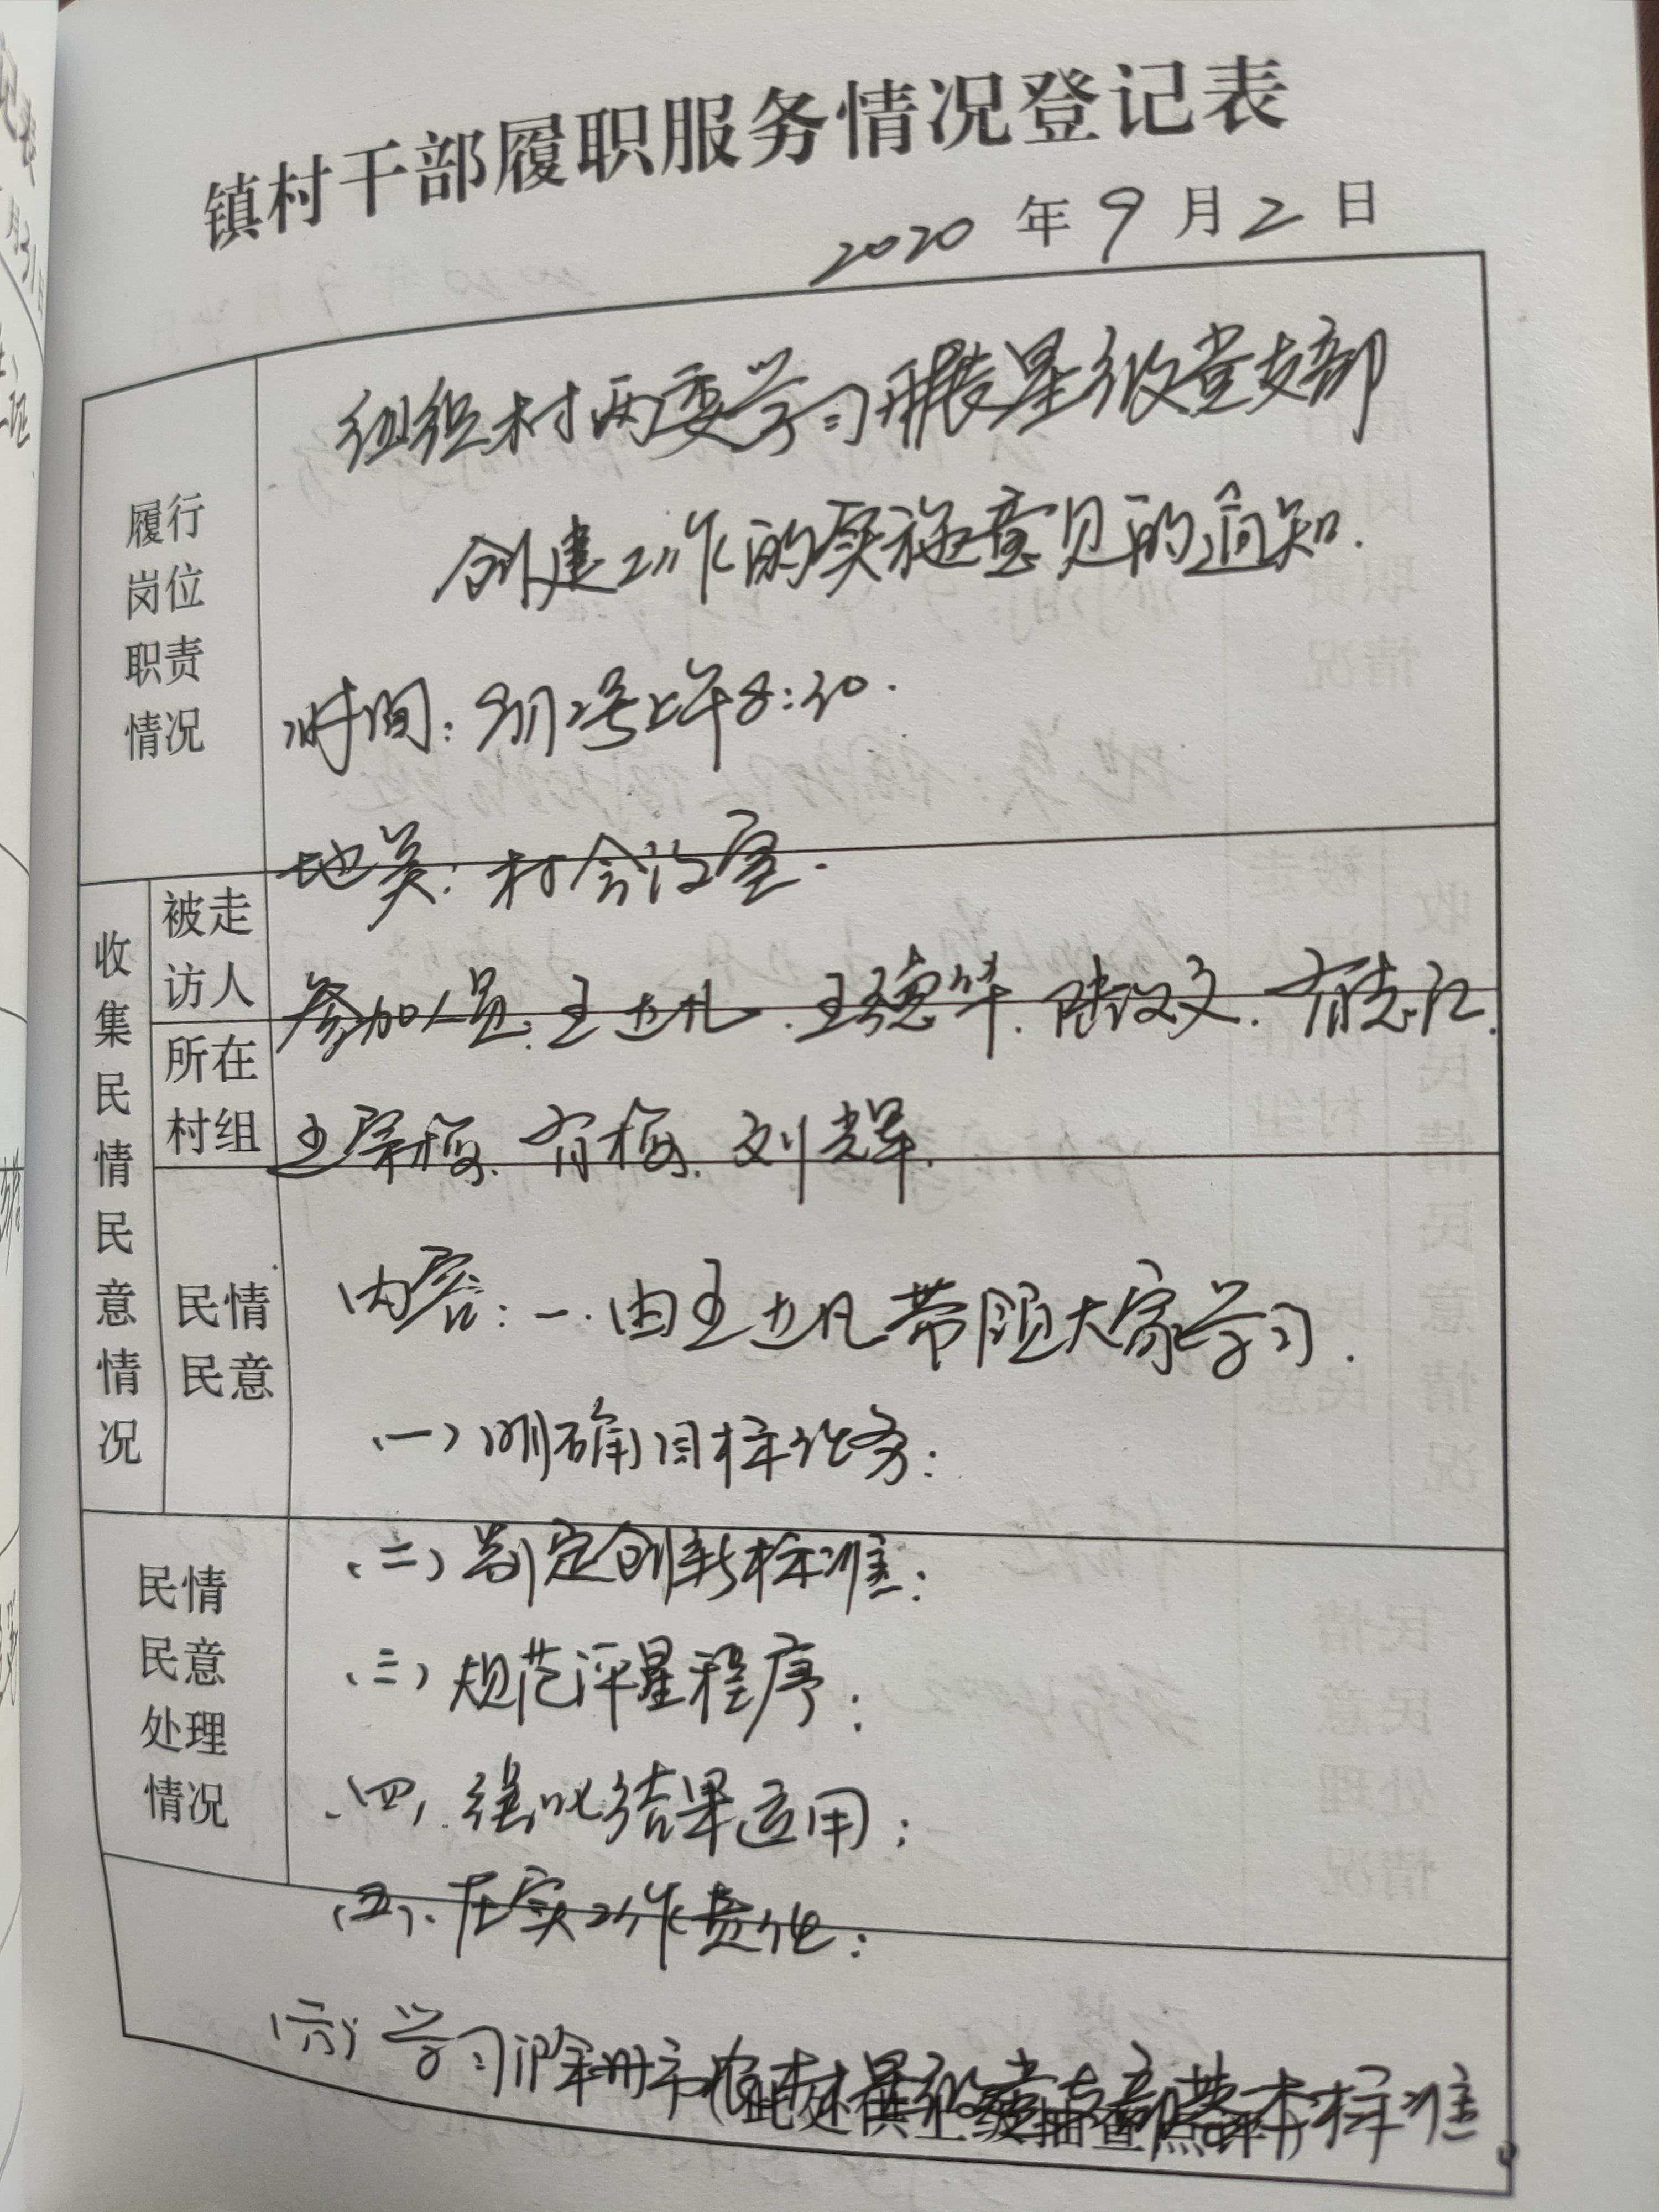 镇村干部履职服务情况登记表
2020年9月2日
履行
岗位
职责
情况
组织村两委学习开展星级党支部
创建工作的实施意见的通知.
时间:9月2号上午8:30.
地关:村会议室.
收集民情民意情况
被走
访人
所在
村组
参加人员.王 .王德华.陆汉文.有志江.
王翠梅.有梅.刘光军.
民情
民意
内容:一.由王 带领大家学习.
(一)明确目标任务:
民情
民意
处理
情况
(二)制定创新标准:
(三)规范评星程序:
(四).强化结果运用:
(五).压实工作责任:
(六)学习滁州市农村星级党支部基本标准.
(此处供上级抽查点评)